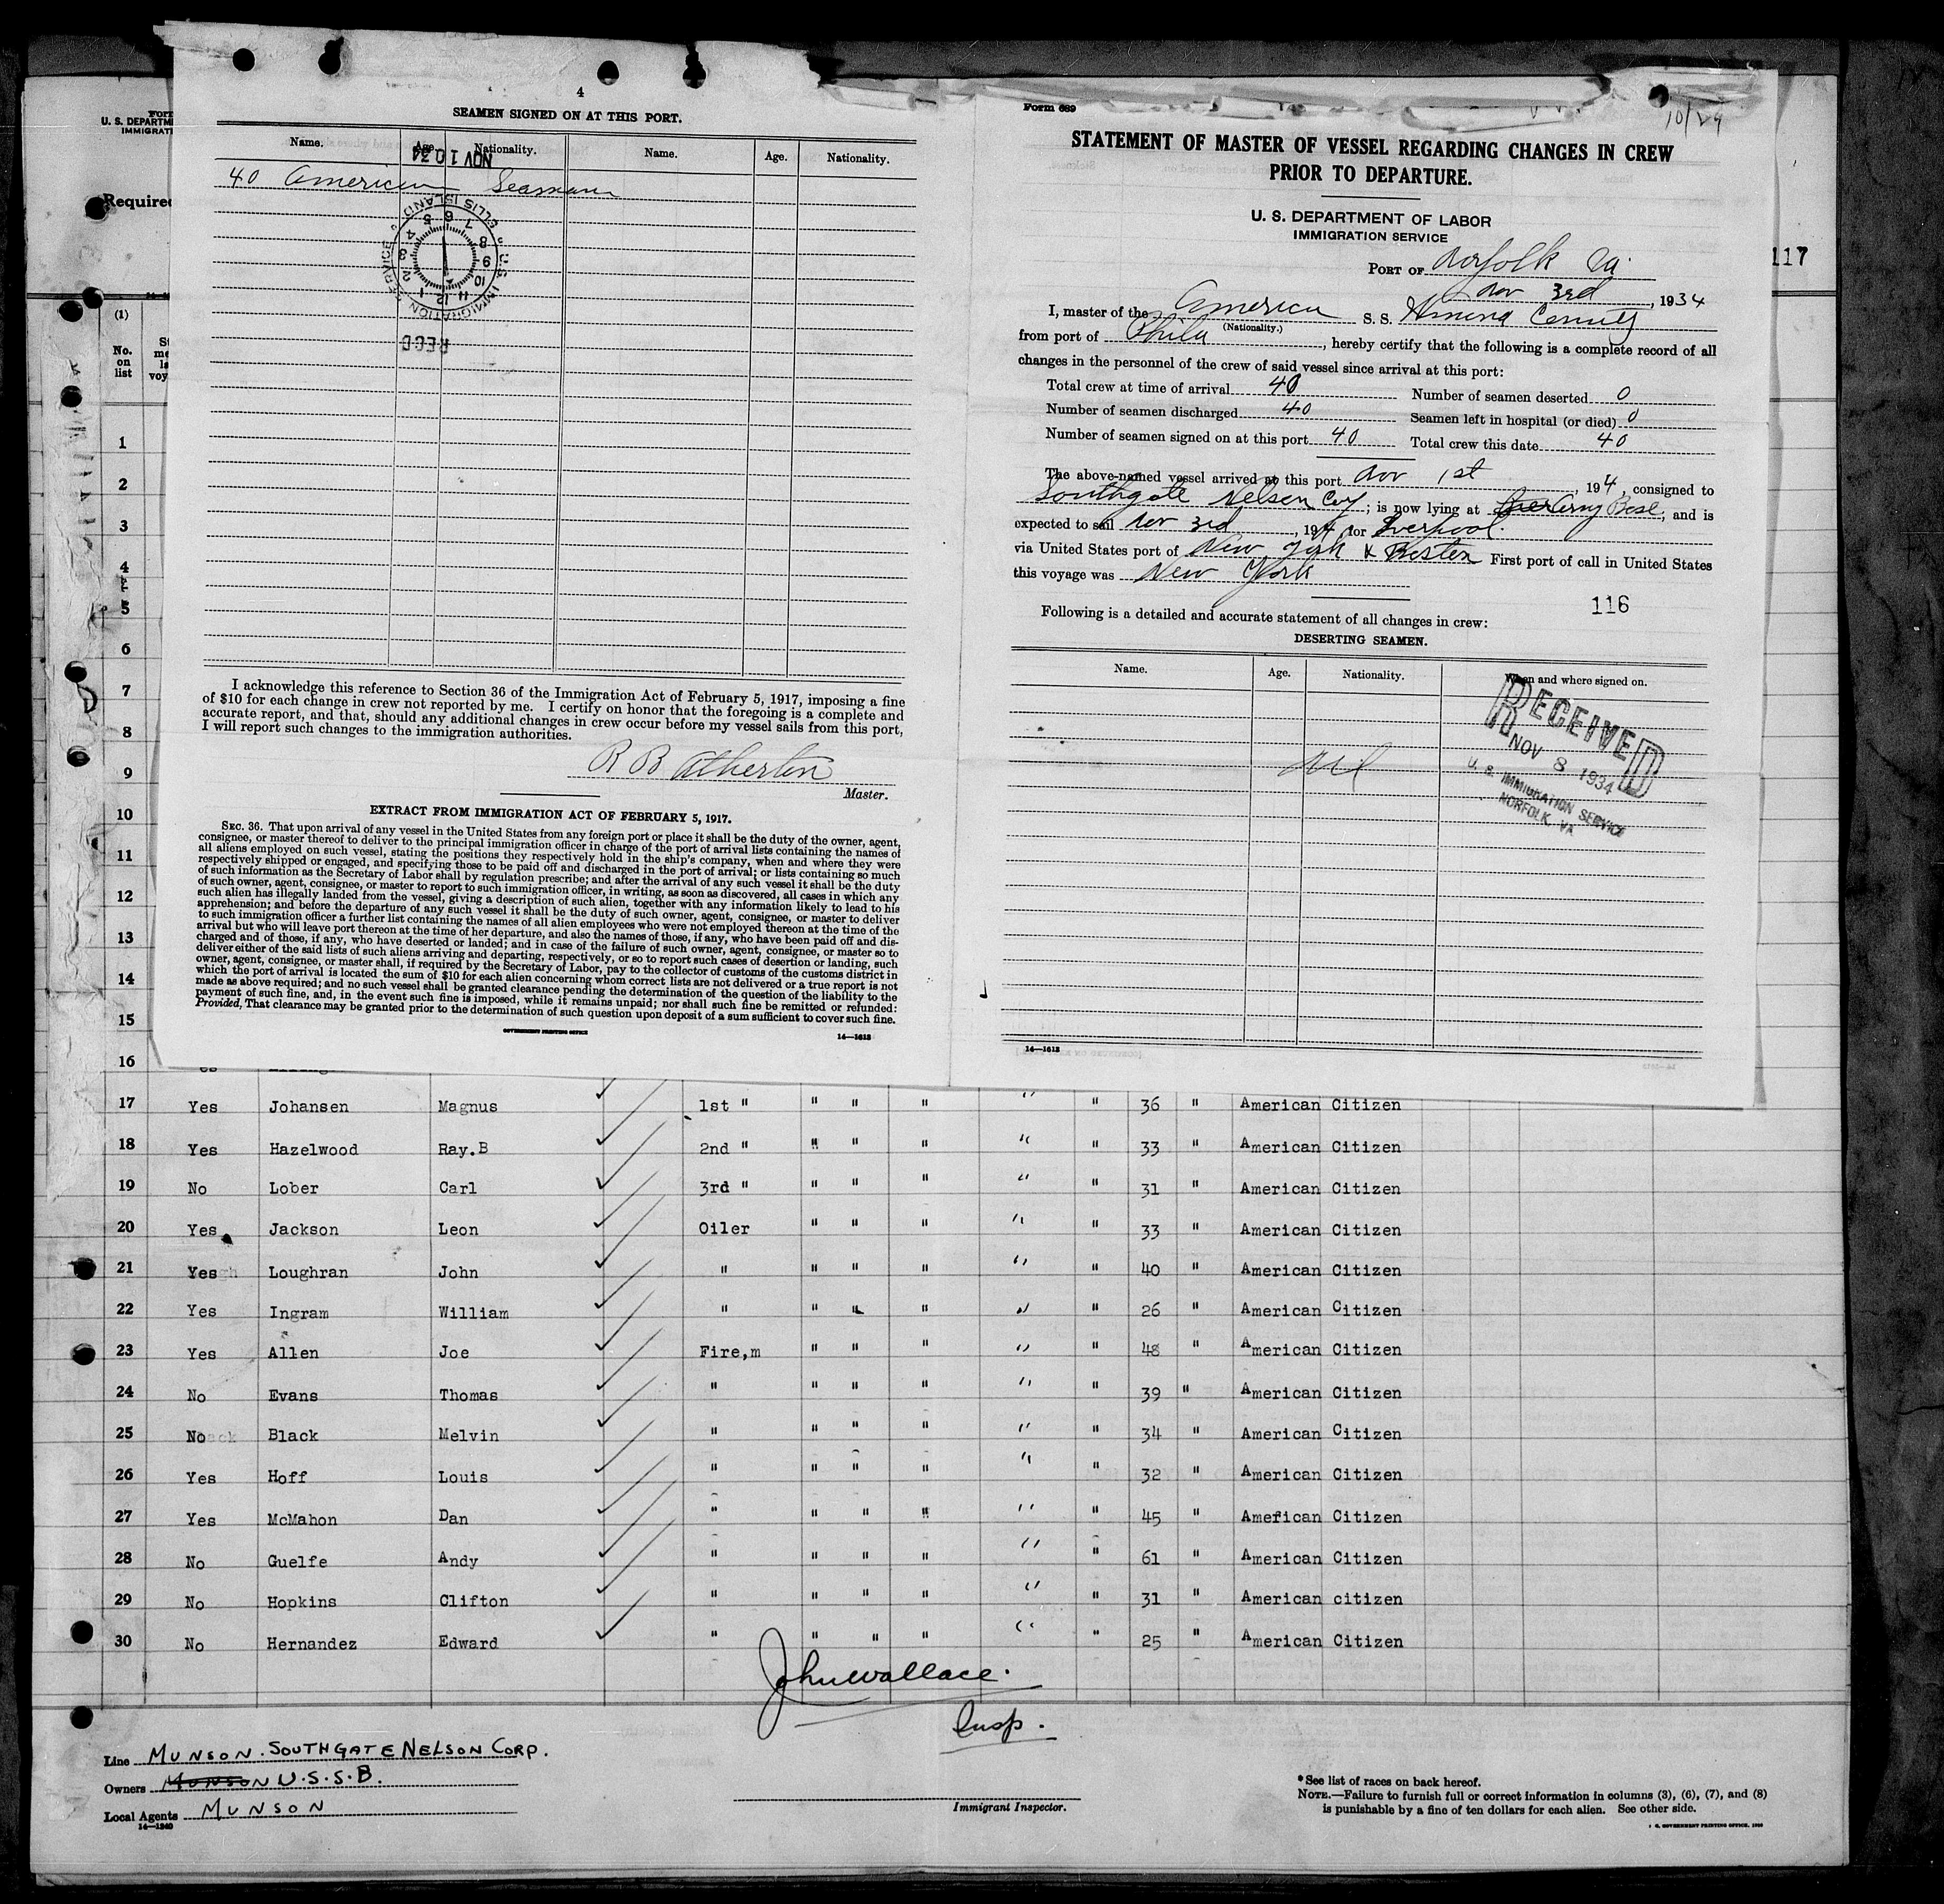 4
SEAMEN SIGNED ON AT THIS PORT.
Name. Age. Nationality. Name. Age. Nationality.
NOV 10 34
40 American Seaman
ELLIS ISLAND
U.S. IMMIGRATION SERVICE
RECD
I acknowledge this reference to Section 36 of the Immigration Act of February 5, 1917, imposing a fine
of $10 for each change in crew not reported by me. I certify on honor that the foregoing is a complete and
accurate report, and that, should any additional changes in crew occur before my vessel sails from this port,
I will report such changes to the immigration authorities.
R B Atherton
Master.
EXTRACT FROM IMMIGRATION ACT OF FEBRUARY 5, 1917.
SEC. 36. That upon arrival of any vessel in the United States from any foreign port or place it shall be the duty of the owner, agent,
consignee, or master thereof to deliver to the principal immigration officer in charge of the port of arrival lists containing the names of
all aliens employed on such vessel, stating the positions they respectively hold in the ship's company, when and where they were
respectively shipped or engaged, and specifying those to be paid off and discharged in the port of arrival; or lists containing so much
of such information as the Secretary of Labor shall by regulation prescribe; and after the arrival of any such vessel it shall be the duty
of such owner, agent, consignee, or master to report to such immigration officer, in writing, as soon as discovered, all cases in which any
such alien has illegally landed from the vessel, giving a description of such alien, together with any information likely to lead to his
apprehension; and before the departure of any such vessel it shall be the duty of such owner, agent, consignee, or master to deliver
to such immigration officer a further list containing the names of all alien employees who were not employed thereon at the time of the
arrival but who will leave port thereon at the time of her departure, and also the names of those, if any, who have been paid off and dis-
charged and of those, if any, who have deserted or landed; and in case of the failure of such owner, agent, consignee, or master so to
deliver either of the said lists of such aliens arriving and departing, respectively, or so to report such cases of desertion or landing, such
owner, agent, consignee, or master shall, if required by the Secretary of Labor, pay to the collector of customs of the customs district in
which the port of arrival is located the sum of $10 for each alien concerning whom correct lists are not delivered or a true report is not
made as above required; and no such vessel shall be granted clearance pending the determination of the question of the liability to the
payment of such fine, and, in the event such fine is imposed, while it remains unpaid; nor shall such fine be remitted or refunded:
Provided, That clearance may be granted prior to the determination of such question upon deposit of a sum sufficient to cover such fine.
GOVERNMENT PRINTING OFFICE
14—1613
Form 689
10/29
STATEMENT OF MASTER OF VESSEL REGARDING CHANGES IN CREW
PRIOR TO DEPARTURE.
U. S. DEPARTMENT OF LABOR
IMMIGRATION SERVICE
PORT OF Norfolk Va.
Nov 3rd, 1934
I, master of the America S. S. County
(Nationality.)
from port of Phila, hereby certify that the following is a complete record of all
changes in the personnel of the crew of said vessel since arrival at this port:
Total crew at time of arrival 40 Number of seamen deserted 0
Number of seamen discharged 40 Seamen left in hospital (or died) 0
Number of seamen signed on at this port 40 Total crew this date 40
The above-named vessel arrived at this port Nov 1st, 194, consigned to
Southgate Nelson Corp; is now lying at Army Base, and is
expected to sail Nov 3rd, 194, for Liverpool.
via United States port of New York & Boston First port of call in United States
this voyage was New York
116
Following is a detailed and accurate statement of all changes in crew:
DESERTING SEAMEN.
Name. Age. Nationality. When and where signed on.
Nil
RECEIVED
NOV 8 1934
U. S. IMMIGRATION SERVICE
NORFOLK, VA
14—1613
117
U. S. DEPARTM
IMMIGRATI
Required
(1)
No.
on
list
1
2
3
4
5
6
7
8
9
10
11
12
13
14
15
16
17 Yes Johansen Magnus 1st " " " " " " 36 " American Citizen
18 Yes Hazelwood Ray.B 2nd " " " " " " 33 " American Citizen
19 No Lober Carl 3rd " " " " " " 31 " American Citizen
20 Yes Jackson Leon Oiler " " " " " 33 " American Citizen
21 Yes Loughran John " " " " " " 40 " American Citizen
22 Yes Ingram William " " " " " " 26 " American Citizen
23 Yes Allen Joe Fire,m " " " " " 48 " American Citizen
24 No Evans Thomas " " " " " " 39 " American Citizen
25 No Black Melvin " " " " " " 34 " American Citizen
26 Yes Hoff Louis " " " " " " 32 " American Citizen
27 Yes McMahon Dan " " " " " " 45 " American Citizen
28 No Guelfe Andy " " " " " " 61 " American Citizen
29 No Hopkins Clifton " " " " " " 31 " American citizen
30 No Hernandez Edward " " " " " " 25 " American Citizen
John Wallace.
Insp.
Line MUNSON. SOUTHGATE NELSON CORP.
Owners MUNSON U.S.S.B.
Local Agents MUNSON
14—1240
Immigrant Inspector.
*See list of races on back hereof.
NOTE.—Failure to furnish full or correct information in columns (3), (6), (7), and (8)
is punishable by a fine of ten dollars for each alien. See other side.